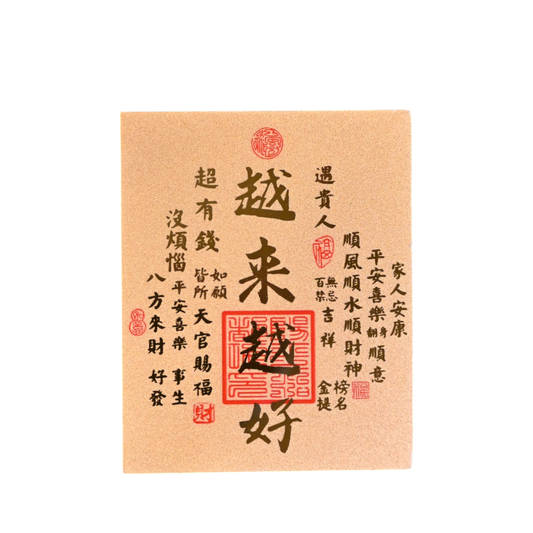 家人安康
平安喜樂
翻身
順意
順風順水順財神
遇貴人
無忌
百禁
吉祥
金榜
提名
越来越好
超有錢
如願
皆所
天官賜福
財
沒煩惱
平安喜樂
事生
八方來財
好發